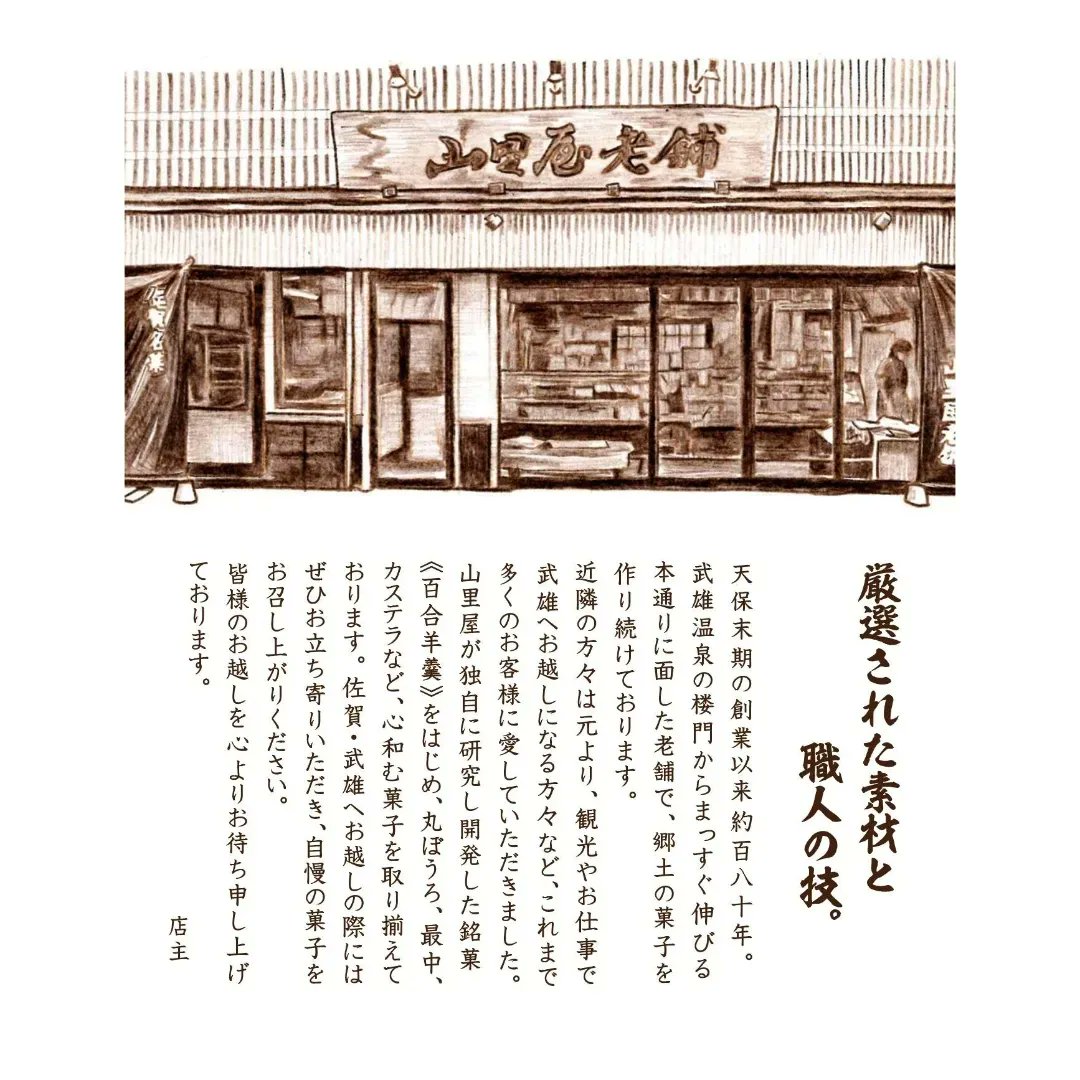 山里屋老舗
佐賀名菓
厳選された素材と
職人の技。
天保末期の創業以来約百八十年。
武雄温泉の楼門からまっすぐ伸びる
本通りに面した老舗で、郷土の菓子を
作り続けております。
近隣の方々は元より、観光やお仕事で
武雄へお越しになる方々など、これまで
多くのお客様に愛していただきました。
山里屋が独自に研究し開発した銘菓
《百合羊羹》をはじめ、丸ぼうろ、最中、
カステラなど、心和む菓子を取り揃えて
おります。佐賀・武雄へお越しの際には
ぜひお立ち寄りいただき、自慢の菓子を
お召し上がりください。
皆様のお越しを心よりお待ち申し上げ
ております。
店主